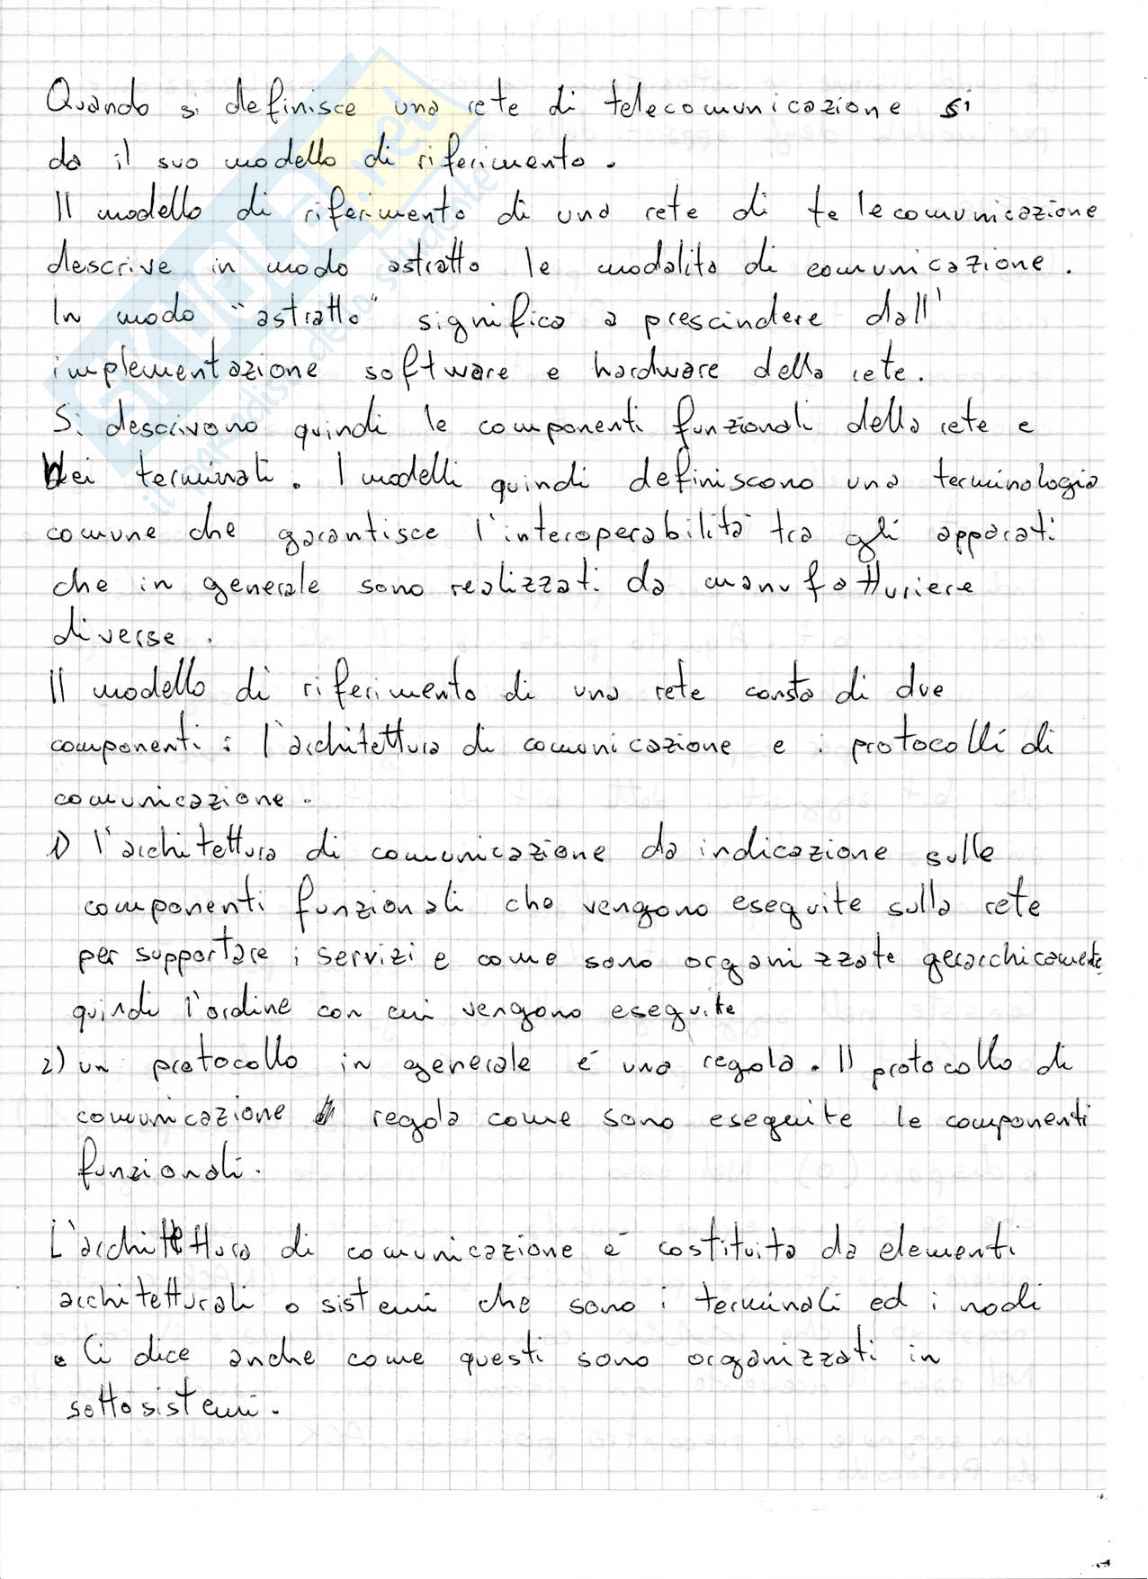 Quando si definisce una rete di telecomunicazione si
da il suo modello di riferimento.
Il modello di riferimento di una rete di telecomunicazione
descrive in modo astratto le modalità di comunicazione.
In modo "astratto" significa a prescindere dall'
implementazione software e hardware della rete.
Si descrivono quindi le componenti funzionali della rete e
dei terminali. I modelli quindi definiscono una terminologia
comune che garantisce l'interoperabilità tra gli apparati
che in generale sono realizzati da manufatturiere
diverse.
Il modello di riferimento di una rete consta di due
componenti: l'architettura di comunicazione e i protocolli di
comunicazione.
1) l'architettura di comunicazione da indicazione sulle
componenti funzionali che vengono eseguite sulla rete
per supportare i servizi e come sono organizzate gerarchicamente
quindi l'ordine con cui vengono eseguite
2) un protocollo in generale è una regola. Il protocollo di
comunicazione regola come sono eseguite le componenti
funzionali.
L'architettura di comunicazione è costituita da elementi
architetturali o sistemi che sono i terminali ed i nodi
. Ci dice anche come questi sono organizzati in
sottosistemi.
SKUOLA.net